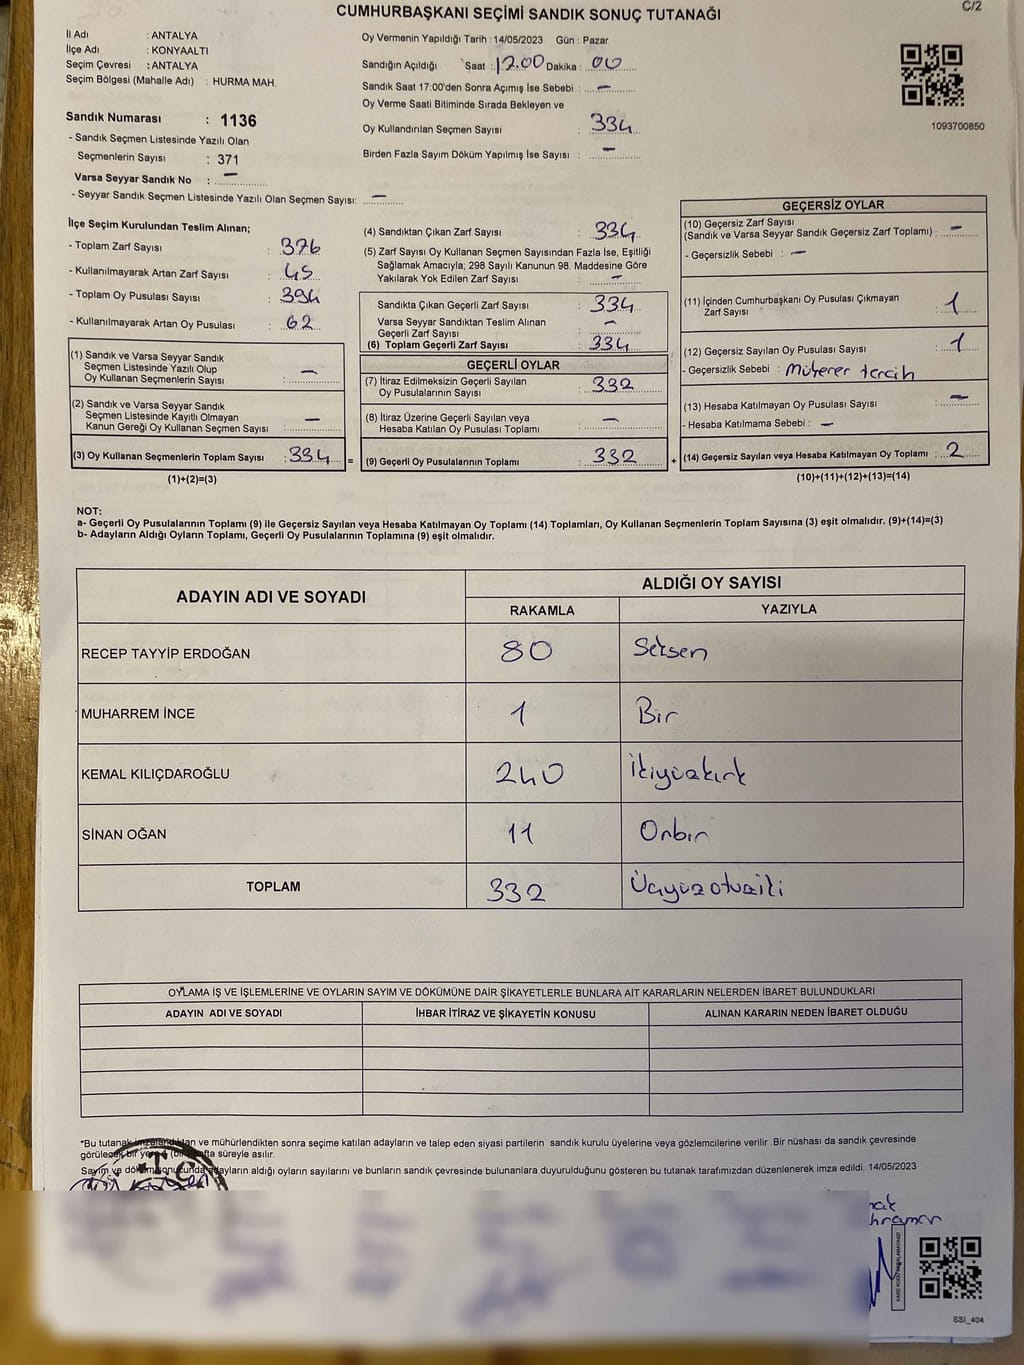 CUMHURBAŞKANI SEÇİMİ SANDIK SONUÇ TUTANAĞI
C/2
İl Adı : ANTALYA
İlçe Adı : KONYAALTI
Seçim Çevresi : ANTALYA
Seçim Bölgesi (Mahalle Adı) : HURMA MAH.
Sandık Numarası : 1136
- Sandık Seçmen Listesinde Yazılı Olan
Seçmenlerin Sayısı : 371
Varsa Seyyar Sandık No : —
- Seyyar Sandık Seçmen Listesinde Yazılı Olan Seçmen Sayısı: —
Oy Vermenin Yapıldığı Tarih : 14/05/2023 Gün : Pazar
Sandığın Açıldığı Saat : 17.00 Dakika : 00
Sandık Saat 17:00'den Sonra Açımış İse Sebebi : —
Oy Verme Saati Bitiminde Sırada Bekleyen ve
Oy Kullandırılan Seçmen Sayısı : 334
Birden Fazla Sayım Döküm Yapılmış İse Sayısı : —
1093700850
İlçe Seçim Kurulundan Teslim Alınan;
- Toplam Zarf Sayısı : 376
- Kullanılmayarak Artan Zarf Sayısı : 45
- Toplam Oy Pusulası Sayısı : 394
- Kullanılmayarak Artan Oy Pusulası : 62
(1) Sandık ve Varsa Seyyar Sandık
Seçmen Listesinde Yazılı Olup
Oy Kullanan Seçmenlerin Sayısı : —
(2) Sandık ve Varsa Seyyar Sandık
Seçmen Listesinde Kayıtlı Olmayan
Kanun Gereği Oy Kullanan Seçmen Sayısı : —
(3) Oy Kullanan Seçmenlerin Toplam Sayısı : 334 =
(1)+(2)=(3)
(4) Sandıktan Çıkan Zarf Sayısı : 334
(5) Zarf Sayısı Oy Kullanan Seçmen Sayısından Fazla İse, Eşitliği
Sağlamak Amacıyla; 298 Sayılı Kanunun 98. Maddesine Göre
Yakılarak Yok Edilen Zarf Sayısı : —
Sandıkta Çıkan Geçerli Zarf Sayısı : 334
Varsa Seyyar Sandıktan Teslim Alınan
Geçerli Zarf Sayısı : —
(6) Toplam Geçerli Zarf Sayısı : 334
GEÇERLİ OYLAR
(7) İtiraz Edilmeksizin Geçerli Sayılan
Oy Pusulalarının Sayısı : 332
(8) İtiraz Üzerine Geçerli Sayılan veya
Hesaba Katılan Oy Pusulası Toplamı : —
(9) Geçerli Oy Pusulalarının Toplamı : 332 +
GEÇERSİZ OYLAR
(10) Geçersiz Zarf Sayısı
(Sandık ve Varsa Seyyar Sandık Geçersiz Zarf Toplamı) : —
- Geçersizlik Sebebi : —
(11) İçinden Cumhurbaşkanı Oy Pusulası Çıkmayan
Zarf Sayısı : 1
(12) Geçersiz Sayılan Oy Pusulası Sayısı : 1
- Geçersizlik Sebebi : tercih
(13) Hesaba Katılmayan Oy Pusulası Sayısı : —
- Hesaba Katılmama Sebebi : —
(14) Geçersiz Sayılan veya Hesaba Katılmayan Oy Toplamı : 2
(10)+(11)+(12)+(13)=(14)
NOT:
a- Geçerli Oy Pusulalarının Toplamı (9) ile Geçersiz Sayılan veya Hesaba Katılmayan Oy Toplamı (14) Toplamları, Oy Kullanan Seçmenlerin Toplam Sayısına (3) eşit olmalıdır. (9)+(14)=(3)
b- Adayların Aldığı Oyların Toplamı, Geçerli Oy Pusulalarının Toplamına (9) eşit olmalıdır.
ADAYIN ADI VE SOYADI
ALDIĞI OY SAYISI
RAKAMLA YAZIYLA
RECEP TAYYİP ERDOĞAN 80 Seksen
MUHARREM İNCE 1 Bir
KEMAL KILIÇDAROĞLU 240 İkiyüzkırk
SİNAN OĞAN 11 Onbir
TOPLAM 332 Üçyüzotuziki
OYLAMA İŞ VE İŞLEMLERİNE VE OYLARIN SAYIM VE DÖKÜMÜNE DAİR ŞİKAYETLERLE BUNLARA AİT KARARLARIN NELERDEN İBARET BULUNDUKLARI
ADAYIN ADI VE SOYADI İHBAR İTİRAZ VE ŞİKAYETİN KONUSU ALINAN KARARIN NEDEN İBARET OLDUĞU
*Bu tutanak imzalandıktan ve mühürlendikten sonra seçime katılan adayların ve talep eden siyasi partilerin sandık kurulu üyelerine veya gözlemcilerine verilir .Bir nüshası da sandık çevresinde
görülecek bir yere 1 (bir) hafta süreyle asılır.
Sayım ve döküm sonucunda adayların aldığı oyların sayılarını ve bunların sandık çevresinde bulunanlara duyurulduğunu gösteren bu tutanak tarafımızdan düzenlenerek imza edildi. 14/05/2023
T.C.
SSI_404